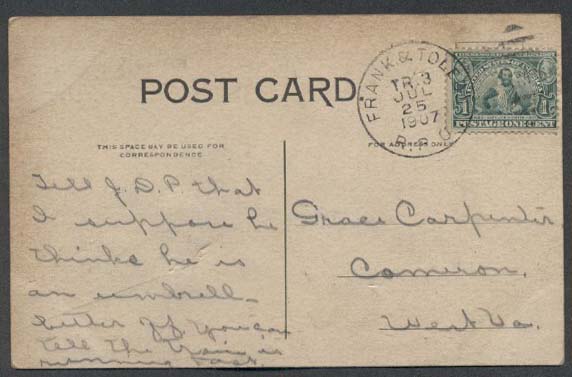 POST CARD
FRANK. & TOLE
TR. 3
JUL
25
1907
R.P.O.
1 POSTAGE ONE CENT 1
THIS SPACE MAY BE USED FOR
CORRESPONDENCE
FOR ADDRESS ONLY
Tell J. D. P that
I suppose he
thinks he is
an umbrell-
If you can
tell the train is
running fast.
Grace Carpenter
Cameron,
West Va.